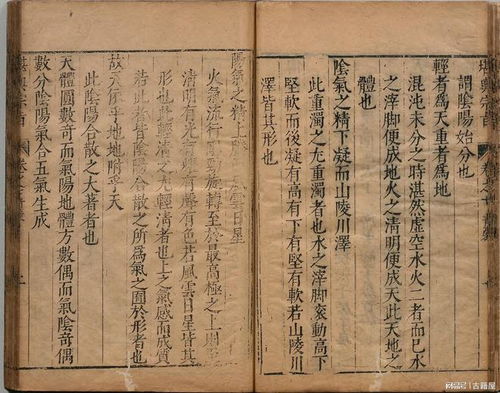 謂陰陽始分也
輕者為天重者為地
混沌未分之時湛然虛空水火二者而已水
之滓脚便成地火之清明便成天此天地之
體也
陰氣之精下凝而山陵川澤
此重濁之尤重濁者也水之滓脚衮動高下
堅軟而後凝有高有下有堅有軟若山陵川
澤皆其形也
陽氣之精上 風雲日星
火氣流行 旋轉至於最高極之上
清明有光 有聲有色若風雲日星皆其
形也 之尤輕清者也上之氣感而成質
若此者皆陰陽合散之所為氣之囿於形者也
故天依乎地地附乎天
此陰陽合散之大著者也
天體圓數奇而氣陽地體方數偶而氣陰奇偶
數分陰陽氣合五氣生成
堪輿宗
搜狐号|古籍屋